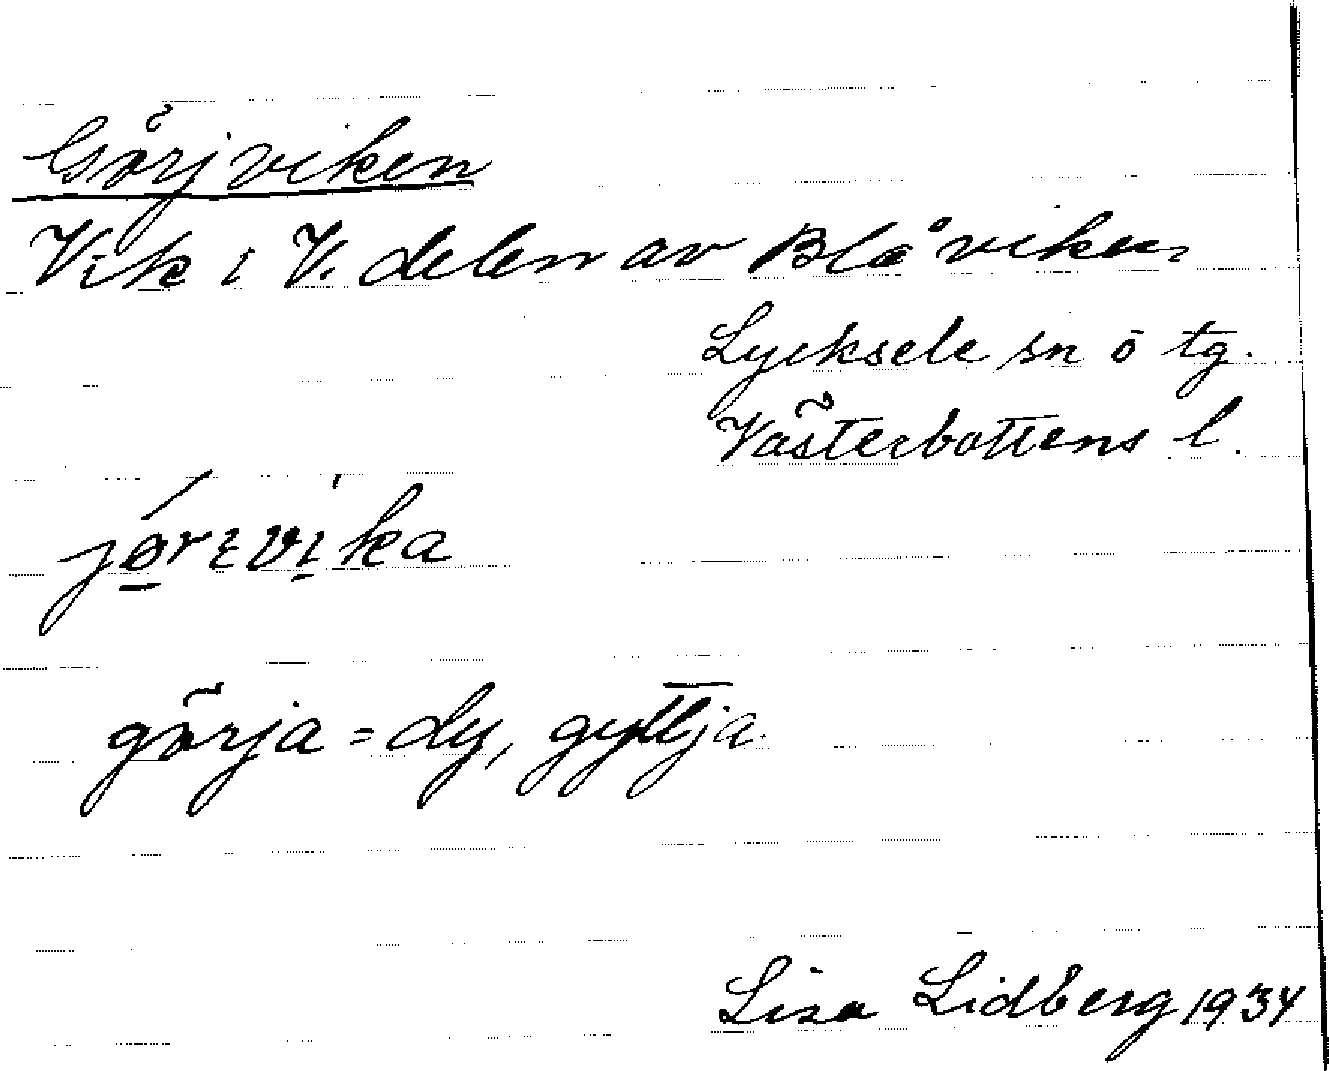 Görjviken
Vik i V. delen av Blåviken
Lycksele sn o tg.
Västerbottens l.
jørɪvika
görja = dy, gyttja.
Lisa Lidberg 1934